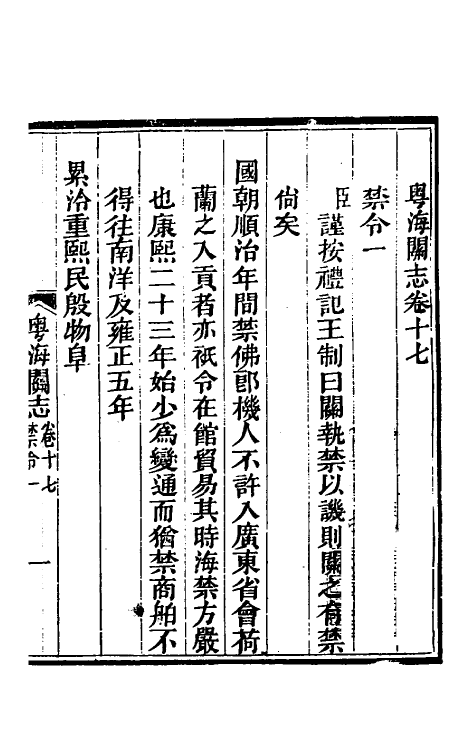 粵海關志卷十七
禁令一
臣謹按禮記王制曰關執禁以譏則關之有禁
尙矣
國朝順治年間禁佛郎機人不許入廣東省會荷
蘭之入貢者亦祇令在館貿易其時海禁方嚴
也康熙二十三年始少為變通而猶禁商舶不
得往南洋及雍正五年
累洽重熙民殷物阜
粵海關志 卷十七 禁令一 一